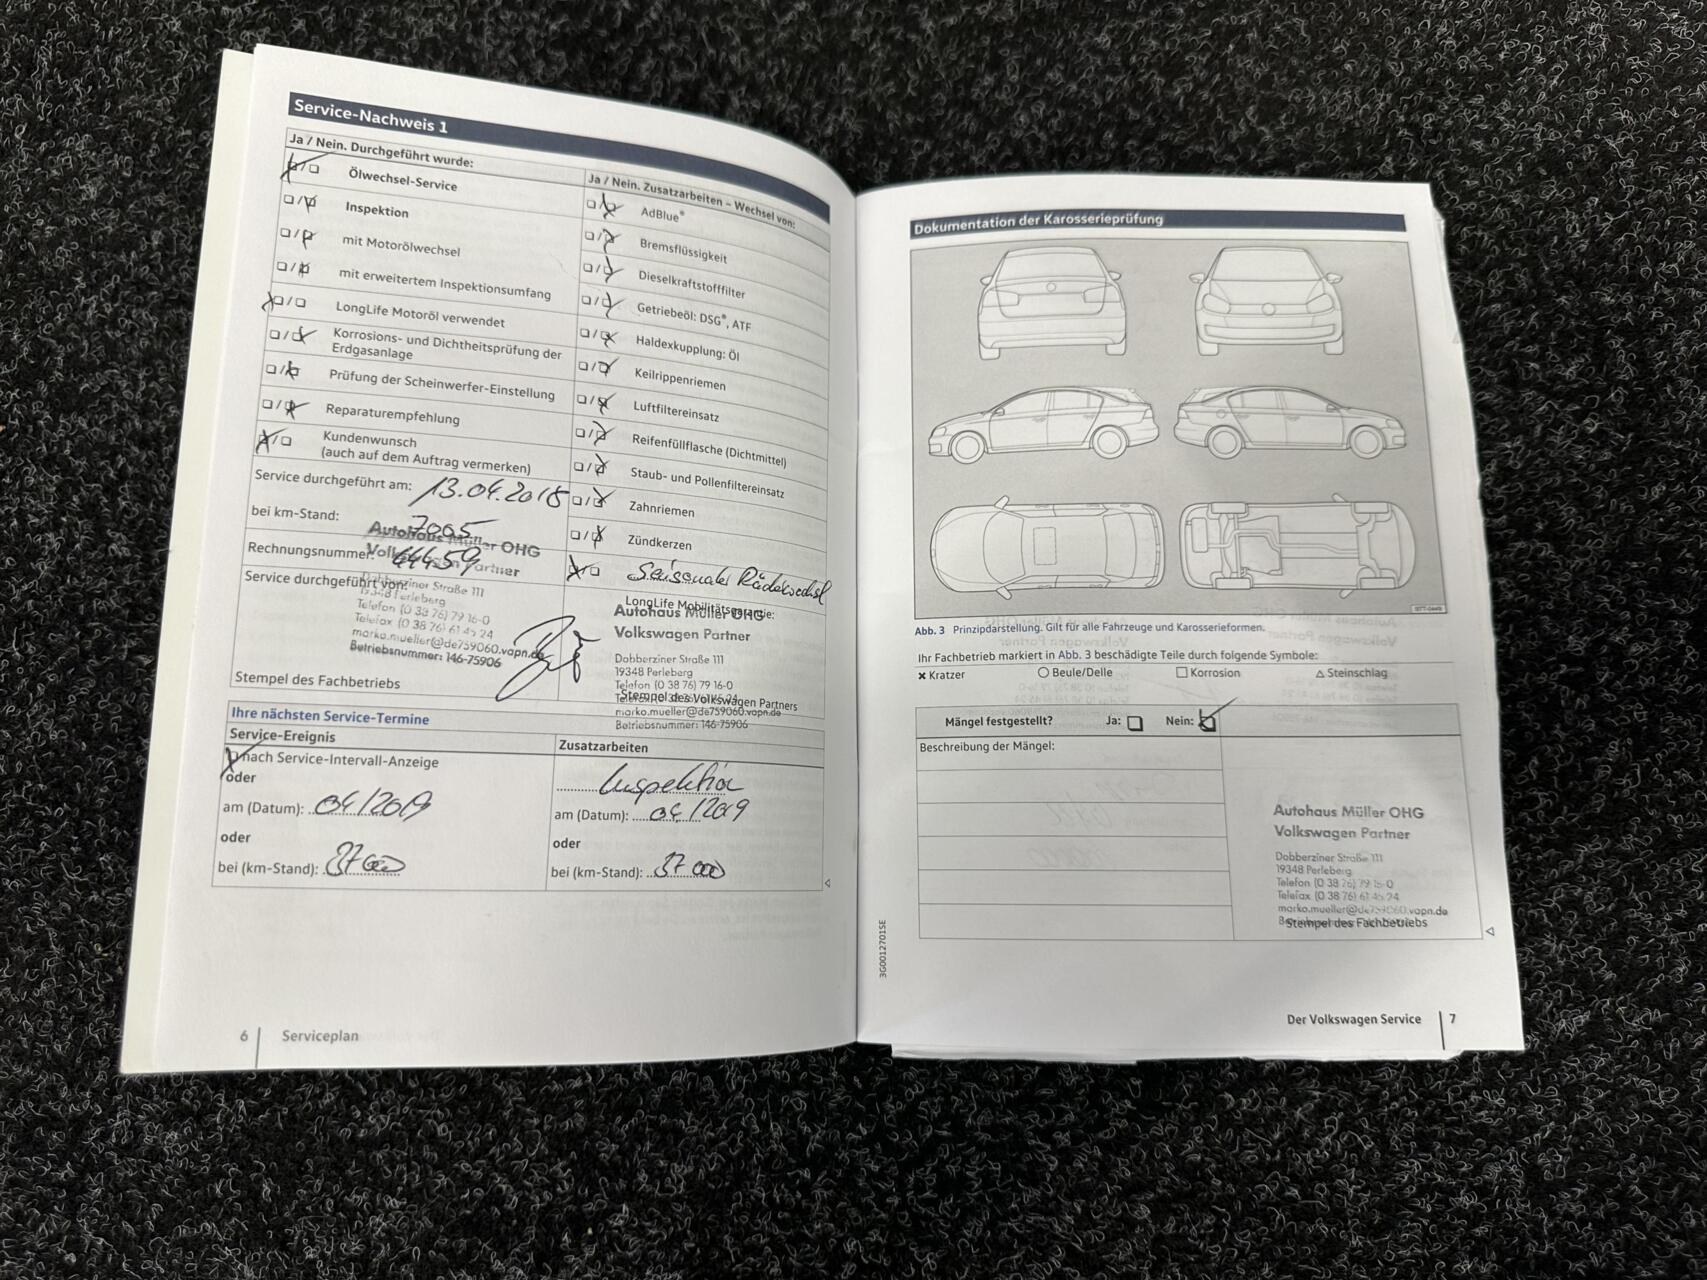 Service-Nachweis 1
Ja / Nein. Durchgeführt wurde:
Ölwechsel-Service
Inspektion
mit Motorölwechsel
mit erweitertem Inspektionsumfang
LongLife Motoröl verwendet
Korrosions- und Dichtheitsprüfung der
Erdgasanlage
Prüfung der Scheinwerfer-Einstellung
Reparaturempfehlung
Kundenwunsch
(auch auf dem Auftrag vermerken)
Service durchgeführt am: 13.04.2018
bei km-Stand: 7005
Rechnungsnummer: 44459
Service durchgeführt von:
Autohaus Müller OHG
Volkswagen Partner
Dobberziner Straße 111
19348 Perleberg
Telefon (0 38 76) 79 16-0
Telefax (0 38 76) 61 45 24
marko.mueller@de759060.vapn.de
Betriebsnummer: 146-75906
Stempel des Fachbetriebs
Ja / Nein. Zusatzarbeiten – Wechsel von:
AdBlue®
Bremsflüssigkeit
Dieselkraftstofffilter
Getriebeöl: DSG®, ATF
Haldexkupplung: Öl
Keilrippenriemen
Luftfiltereinsatz
Reifenfüllflasche (Dichtmittel)
Staub- und Pollenfiltereinsatz
Zahnriemen
Zündkerzen
Saisonaler Räderwechsel
LongLife Mobilitätsgarantie:
Autohaus Müller OHG
Volkswagen Partner
Dobberziner Straße 111
19348 Perleberg
Telefon (0 38 76) 79 16-0
Stempel des Volkswagen Partners
marko.mueller@de759060.vapn.de
Betriebsnummer: 146-75906
Ihre nächsten Service-Termine
Service-Ereignis
nach Service-Intervall-Anzeige
oder
am (Datum): 04/2019
oder
bei (km-Stand): 37 000
Zusatzarbeiten
Inspektion
am (Datum): 04/2019
oder
bei (km-Stand): 37 000
6 Serviceplan
Dokumentation der Karosserieprüfung
Abb. 3 Prinzipdarstellung. Gilt für alle Fahrzeuge und Karosserieformen.
Ihr Fachbetrieb markiert in Abb. 3 beschädigte Teile durch folgende Symbole:
Kratzer Beule/Delle Korrosion Steinschlag
Mängel festgestellt? Ja: Nein:
Beschreibung der Mängel:
Autohaus Müller OHG
Volkswagen Partner
Dobberziner Straße 111
19348 Perleberg
Telefon (0 38 76) 79 16-0
Telefax (0 38 76) 61 45 24
marko.mueller@de759060.vapn.de
Stempel des Fachbetriebs
3G0012701SE
Der Volkswagen Service 7